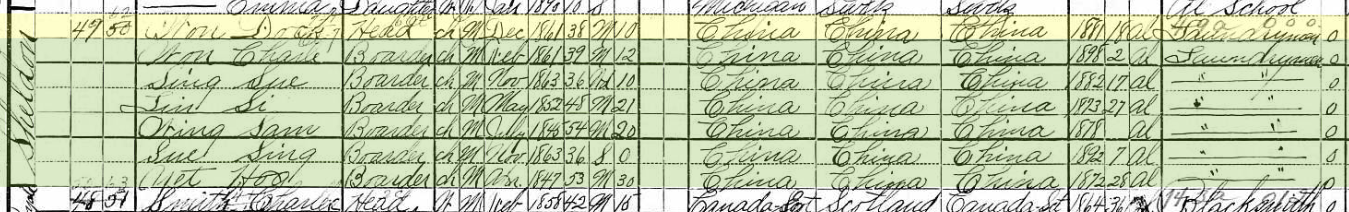 Emma Daughter Jan 1890 10 S Michigan Swtz Swtz At School
Sheldon 47 50 Won Dock Head Ch M Dec 1861 38 M 10 China China China 1881 18 Al Laundryman 0
Won Charle Boarder Ch M Feb 1861 39 M 12 China China China 1898 2 Al Laundryman 0
Sing Sue Boarder Ch M Nov 1863 36 Wd 10 China China China 1882 17 Al " " 0
Lin Si Boarder Ch M May 1852 48 M 21 China China China 1873 27 Al " " 0
Wing Sam Boarder Ch M July 1845 54 M 20 China China China 1878 Al " " 0
Sue Sing Boarder Ch M Nov 1863 36 S 0 China China China 1892 7 Al " " 0
Yet Hop Boarder Ch M Apr 1847 53 M 30 China China China 1872 28 Al " " 0
48 51 Smith Charles Head W M Feb 1858 42 M 15 Canada Scotland Canada 1864 36 Blacksmith 0